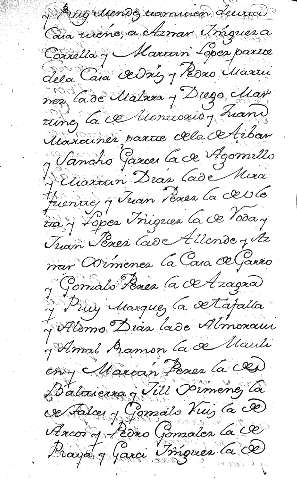 y Ruy Mendez tambien de una
Casa viene, a Aznar Iñiguez a
Corella y Martin Lopez parte
dela Casa de Oriz y Pedro Marti
nez la de Matxra y Diego Mar
tinez la de Monteorio y Juan
Martinez parte de la de Azbar
y Sancho Garces la de Agoncillo
y Martin Diaz la de Mira
fuentes y Juan Perez la de
y Lopez Iñiguez la de Poda y
Juan Perez la de Allende y Az
nar Ximenez la Casa de Garro
y Gonzalo Perez la de Azagra
y Ruy Marquez la de Rafalla
y Aldmo Diaz la de Almoravi
y Arnal Ramon la de Mauli
en y Martin Perez la de
Baltierra y Jill Ximenez la
de Falces y Gonzalo Ruiz la de
Arcos y Pedro Gonzalez la de
Praya y Garci Iñiguez la de